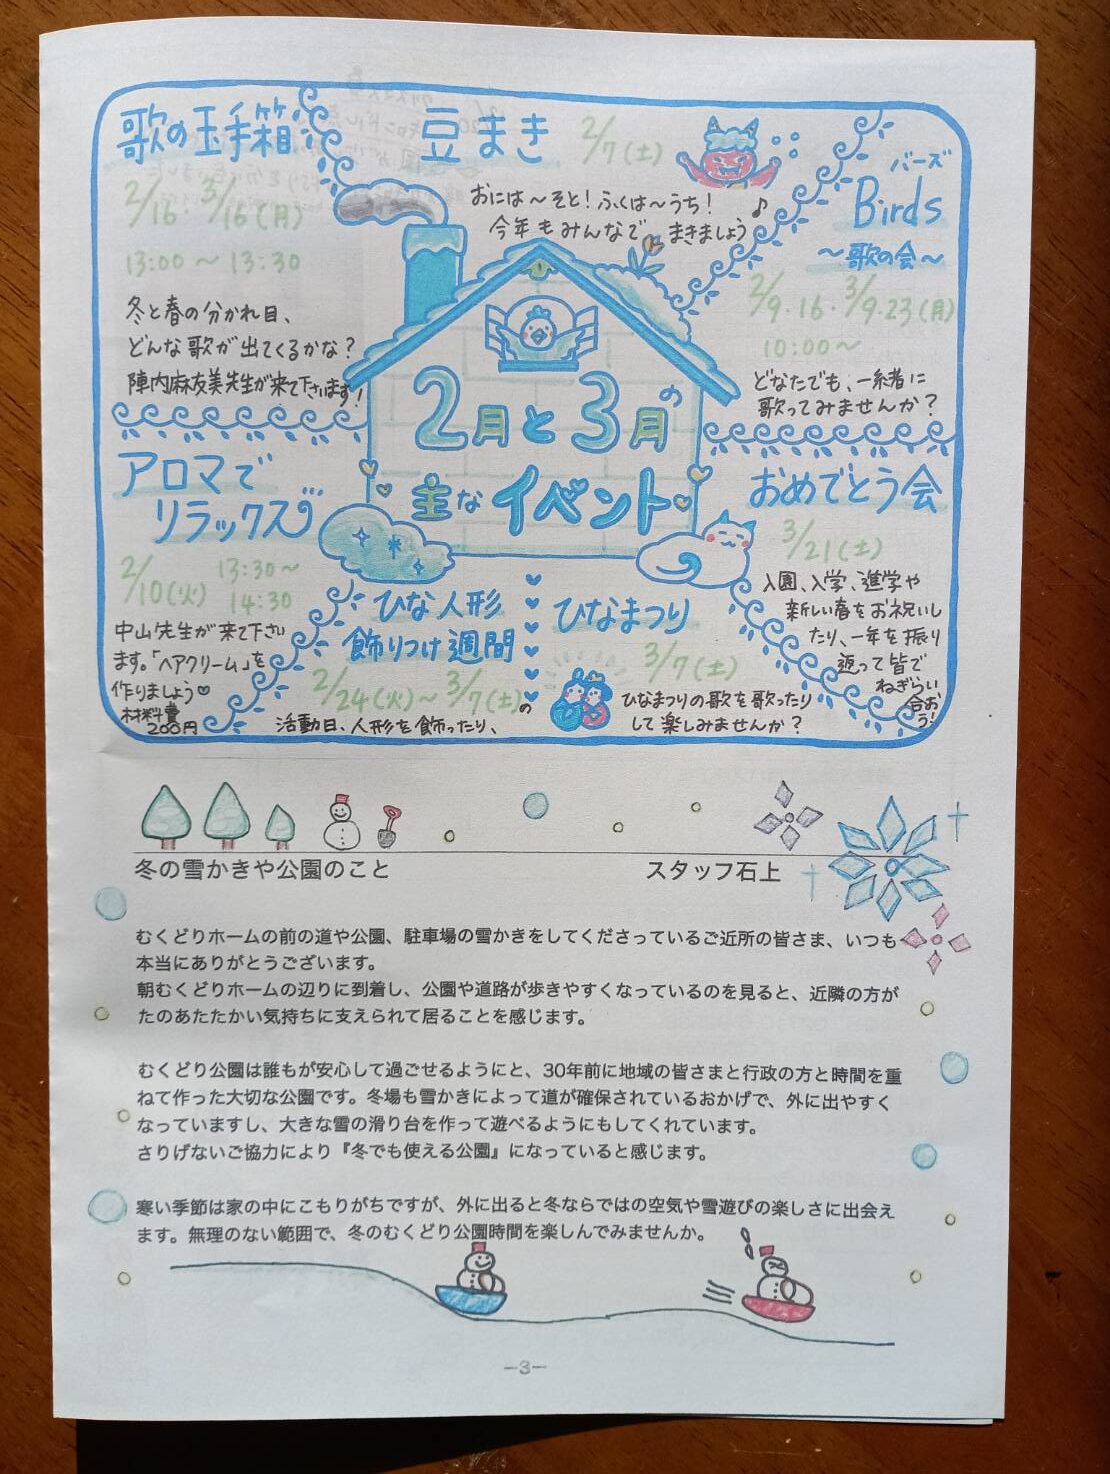 歌の玉手箱
2/16 3/16(月)
13:00～13:30
冬と春の分かれ目、
どんな歌が出てくるかな?
陣内麻友美先生が来て下さいます!
豆まき 2/7(土)
おには～そと!ふくは～うち!
今年もみんなでまきましょう♪
バーズ
Birds
～歌の会～
2/9・16・3/9・23(月)
10:00～
どなたでも、一緒に
歌ってみませんか?
2月と3月の
主なイベント
アロマで
リラックス
2/10(火) 13:30～
14:30
中山先生が来て下さい
ます。「ヘアクリーム」を
作りましょう♡
材料費
200円
ひな人形
飾りつけ週間
2/24(火)～3/7(土)の
活動日、人形を飾ったり、
ひなまつり
3/7(土)
ひなまつりの歌を歌ったり
して楽しみませんか?
おめでとう会
3/21(土)
入園、入学、進学や
新しい春をお祝いし
たり、一年を振り
返って皆で
ねぎらい
合おう!
冬の雪かきや公園のこと スタッフ石上
むくどりホームの前の道や公園、駐車場の雪かきをしてくださっているご近所の皆さま、いつも
本当にありがとうございます。
朝むくどりホームの辺りに到着し、公園や道路が歩きやすくなっているのを見ると、近隣の方が
たのあたたかい気持ちに支えられて居ることを感じます。
むくどり公園は誰もが安心して過ごせるようにと、30年前に地域の皆さまと行政の方と時間を重
ねて作った大切な公園です。冬場も雪かきによって道が確保されているおかげで、外に出やすく
なっていますし、大きな雪の滑り台を作って遊べるようにもしてくれています。
さりげないご協力により『冬でも使える公園』になっていると感じます。
寒い季節は家の中にこもりがちですが、外に出ると冬ならではの空気や雪遊びの楽しさに出会え
ます。無理のない範囲で、冬のむくどり公園時間を楽しんでみませんか。
—3—